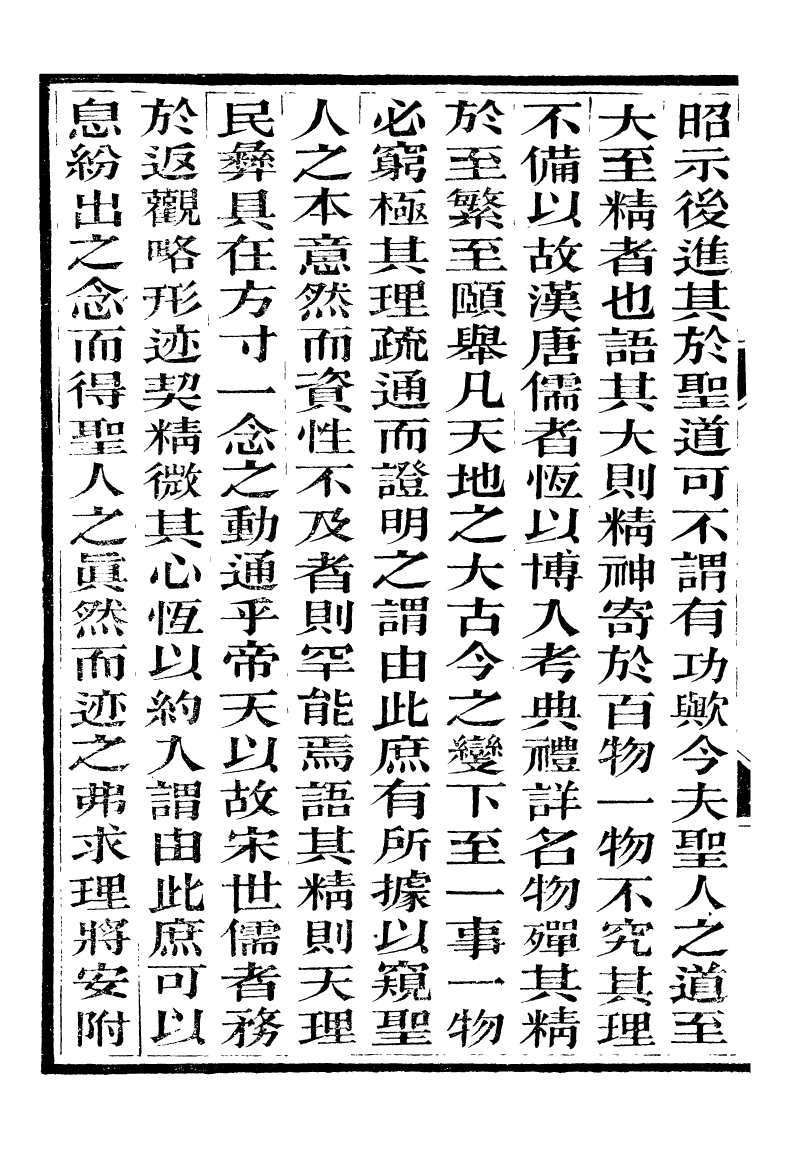 昭示後進其於聖道可不謂有功歟今夫聖人之道至
大至精者也語其大則精神寄於百物一物不究其理
不備以故漢唐儒者恆以博入考典禮詳名物殫其精
於至繁至頤舉凡天地之大古今之變下至一事一物
必窮極其理疏通而證明之謂由此庶有所據以窺聖
人之本意然而資性不及者則罕能焉語其精則天理
民彝具在方寸一念之動通乎帝天以故宋世儒者務
於返觀略形迹契精微其心恆以約入謂由此庶可以
息紛出之念而得聖人之眞然而迹之弗求理將安附